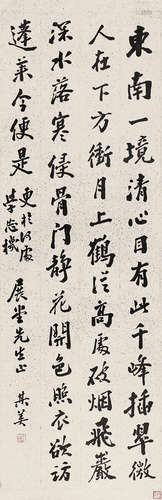 東南一境清心目有此千峰插翠微
人在下方衝月上鶴從高處破烟飛巖
深水落寒侵骨門靜花開色照衣欲訪
蓬萊今便是
更於何處
學忘機
展堂先生正
其美